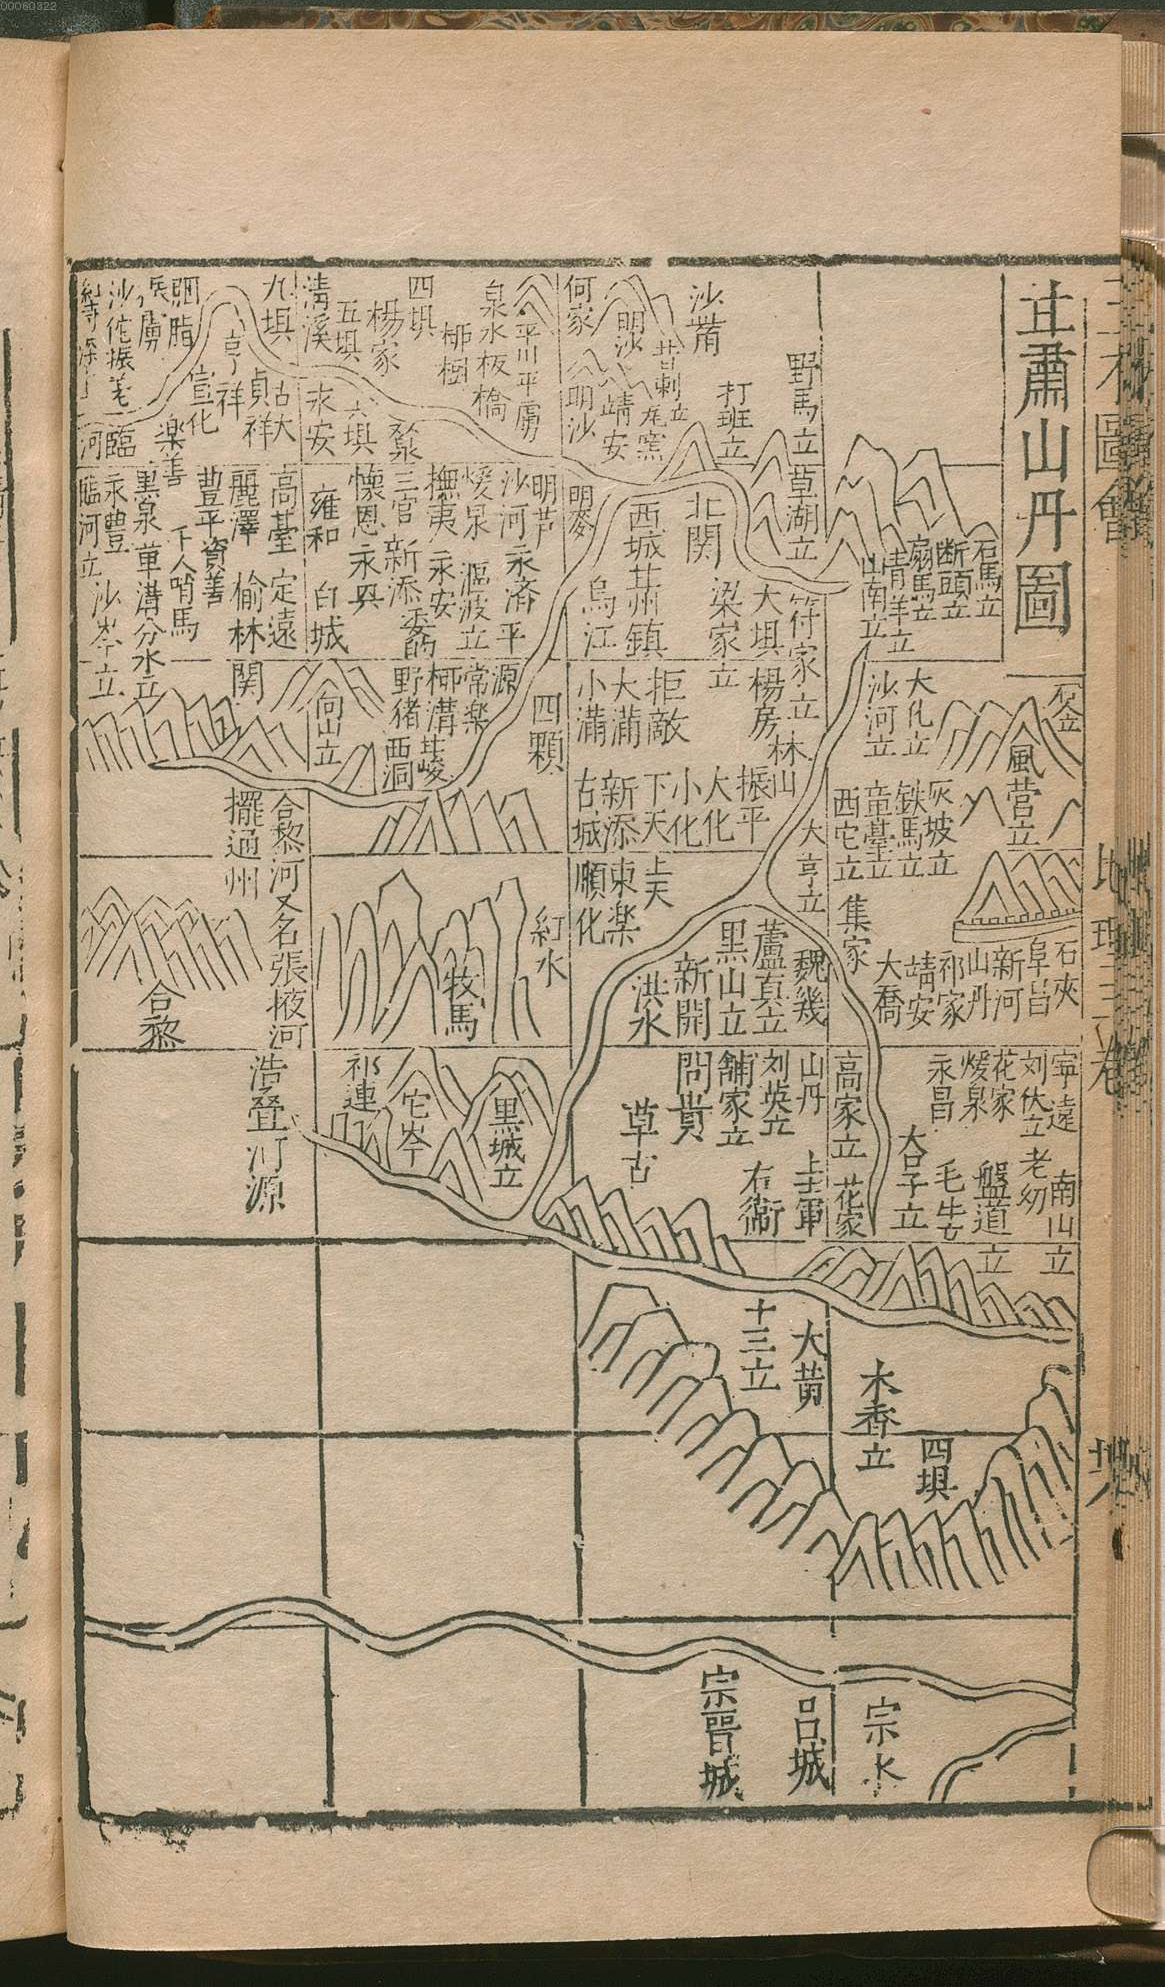 00060322
三才圖會
地理三卷
甘肅山丹圖
石馬立
断頭立
扇馬立
青羊立
山南立
野馬立
草湖立
沙莆
打班立
昔剌立
瓦窑
明沙
靖安
何家
明沙
平川
平虜
泉水
板橋
柳樹
四垻
楊家
五垻
六垻
清溪
永安
九垻
古大
貞祥
亨祥
宣化
胭脂
楽善
沙作振羌
臨河
北関
西城
甘州鎮
烏江
梁家立
大垻
符家立
明麥
明芦
沙河
永济
平源
煖泉
漚波立
常楽
撫夷
永安
柳溝
三官
新添
野猪
懐恩
永兴
雍和
白城
高臺
定遠
麗澤
榆林関
豊平
資善
下人哨馬
黒泉
草溝
分水立
永豊
沙岺立
臨河立
風营立
大化立
沙河立
灰坡立
鉄馬立
童臺立
西屯立
楊房
林山
振平
大化
小化
下天
新添
古城
拒敵
大滿
小滿
四顆
甘峻
西洞
向山立
大亨立
上天
東楽
順化
紅水
牧馬
擺通州
合黎河又名張掖河
合黎
石夾
阜昌
新河
山丹
祁家
靖安
大喬
集家
魏幾
蘆真立
黒山立
新開
洪水
寧遠
刘伏立
花家
煖泉
永昌
高家立
山丹
刘英立
舗家立
問貴
草古
老幼
南山立
盤道立
毛牛立
台子立
花家
上軍
右衛
黒城立
屯岺
祁連
浩亹河源
大黄
十三立
木香立
四垻
宗水
吕城
宗晋城